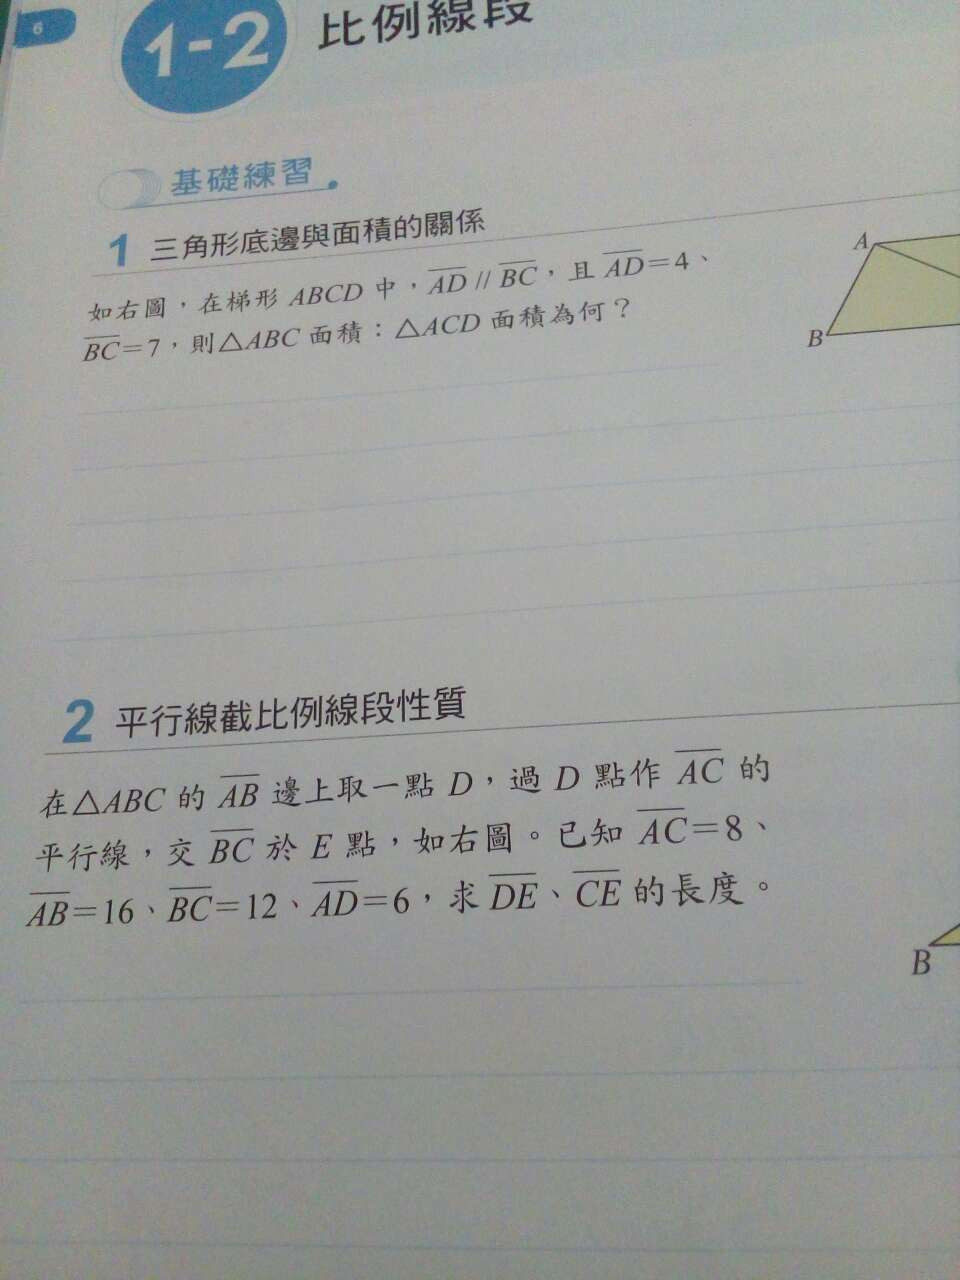 6
1-2 比例線段
基礎練習
1 三角形底邊與面積的關係
如右圖，在梯形 ABCD 中，AD // BC，且 AD=4、
BC=7，則△ABC 面積：△ACD 面積為何？
A
B
2 平行線截比例線段性質
在△ABC 的 AB 邊上取一點 D，過 D 點作 AC 的
平行線，交 BC 於 E 點，如右圖。已知 AC=8、
AB=16、BC=12、AD=6，求 DE、CE 的長度。
B